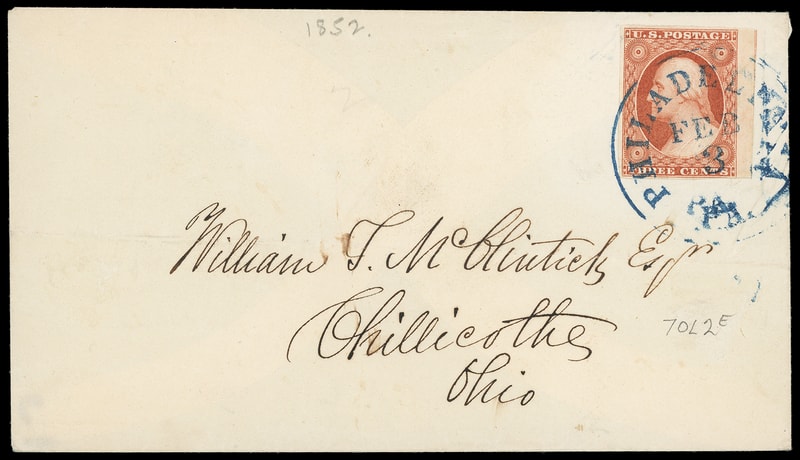 1852.
U.S. POSTAGE
PHILADELPHIA
FEB
3
THREE CENTS
PA.
William T. McClintick Esqr
Chillicothe
Ohio
70L2E